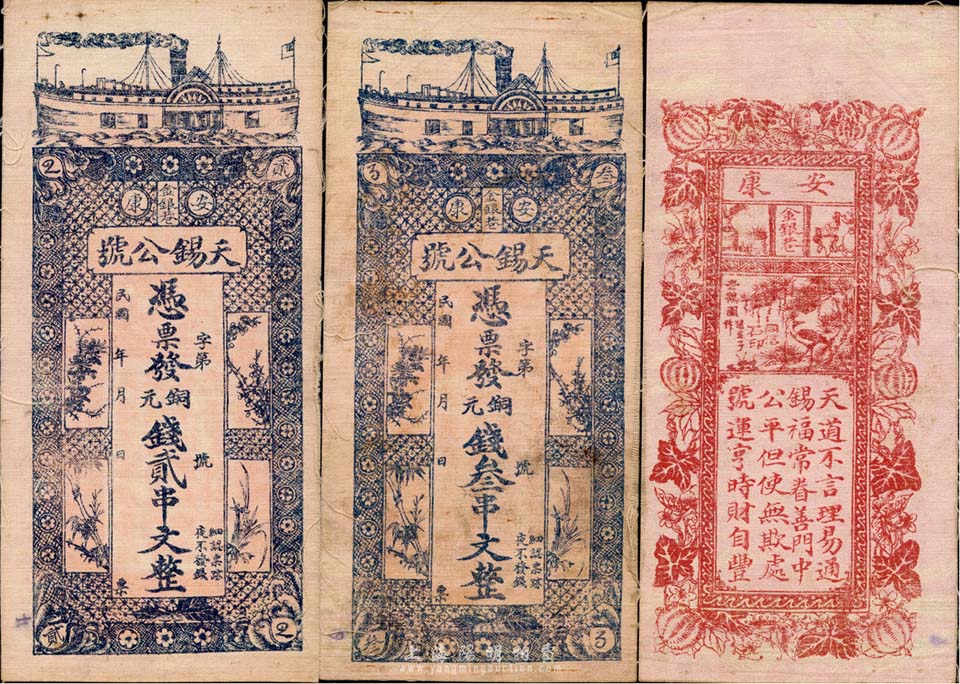 2
贰
安
金銀巷
康
天錫公號
字第
號
憑票發銅元錢貳串文整
民國
年
月
日
細認票蹤
夜不發錢
票
贰
2
3
叁
安
金銀巷
康
天錫公號
字第
號
憑票發銅元錢叁串文整
民國
年
月
日
細認票蹤
夜不發錢
票
叁
3
安康
金銀巷
天道不言理易通
錫福常眷善門中
公平但使無欺處
號運亨時財自豐
上海陽明拍賣
www.yangmingauction.com